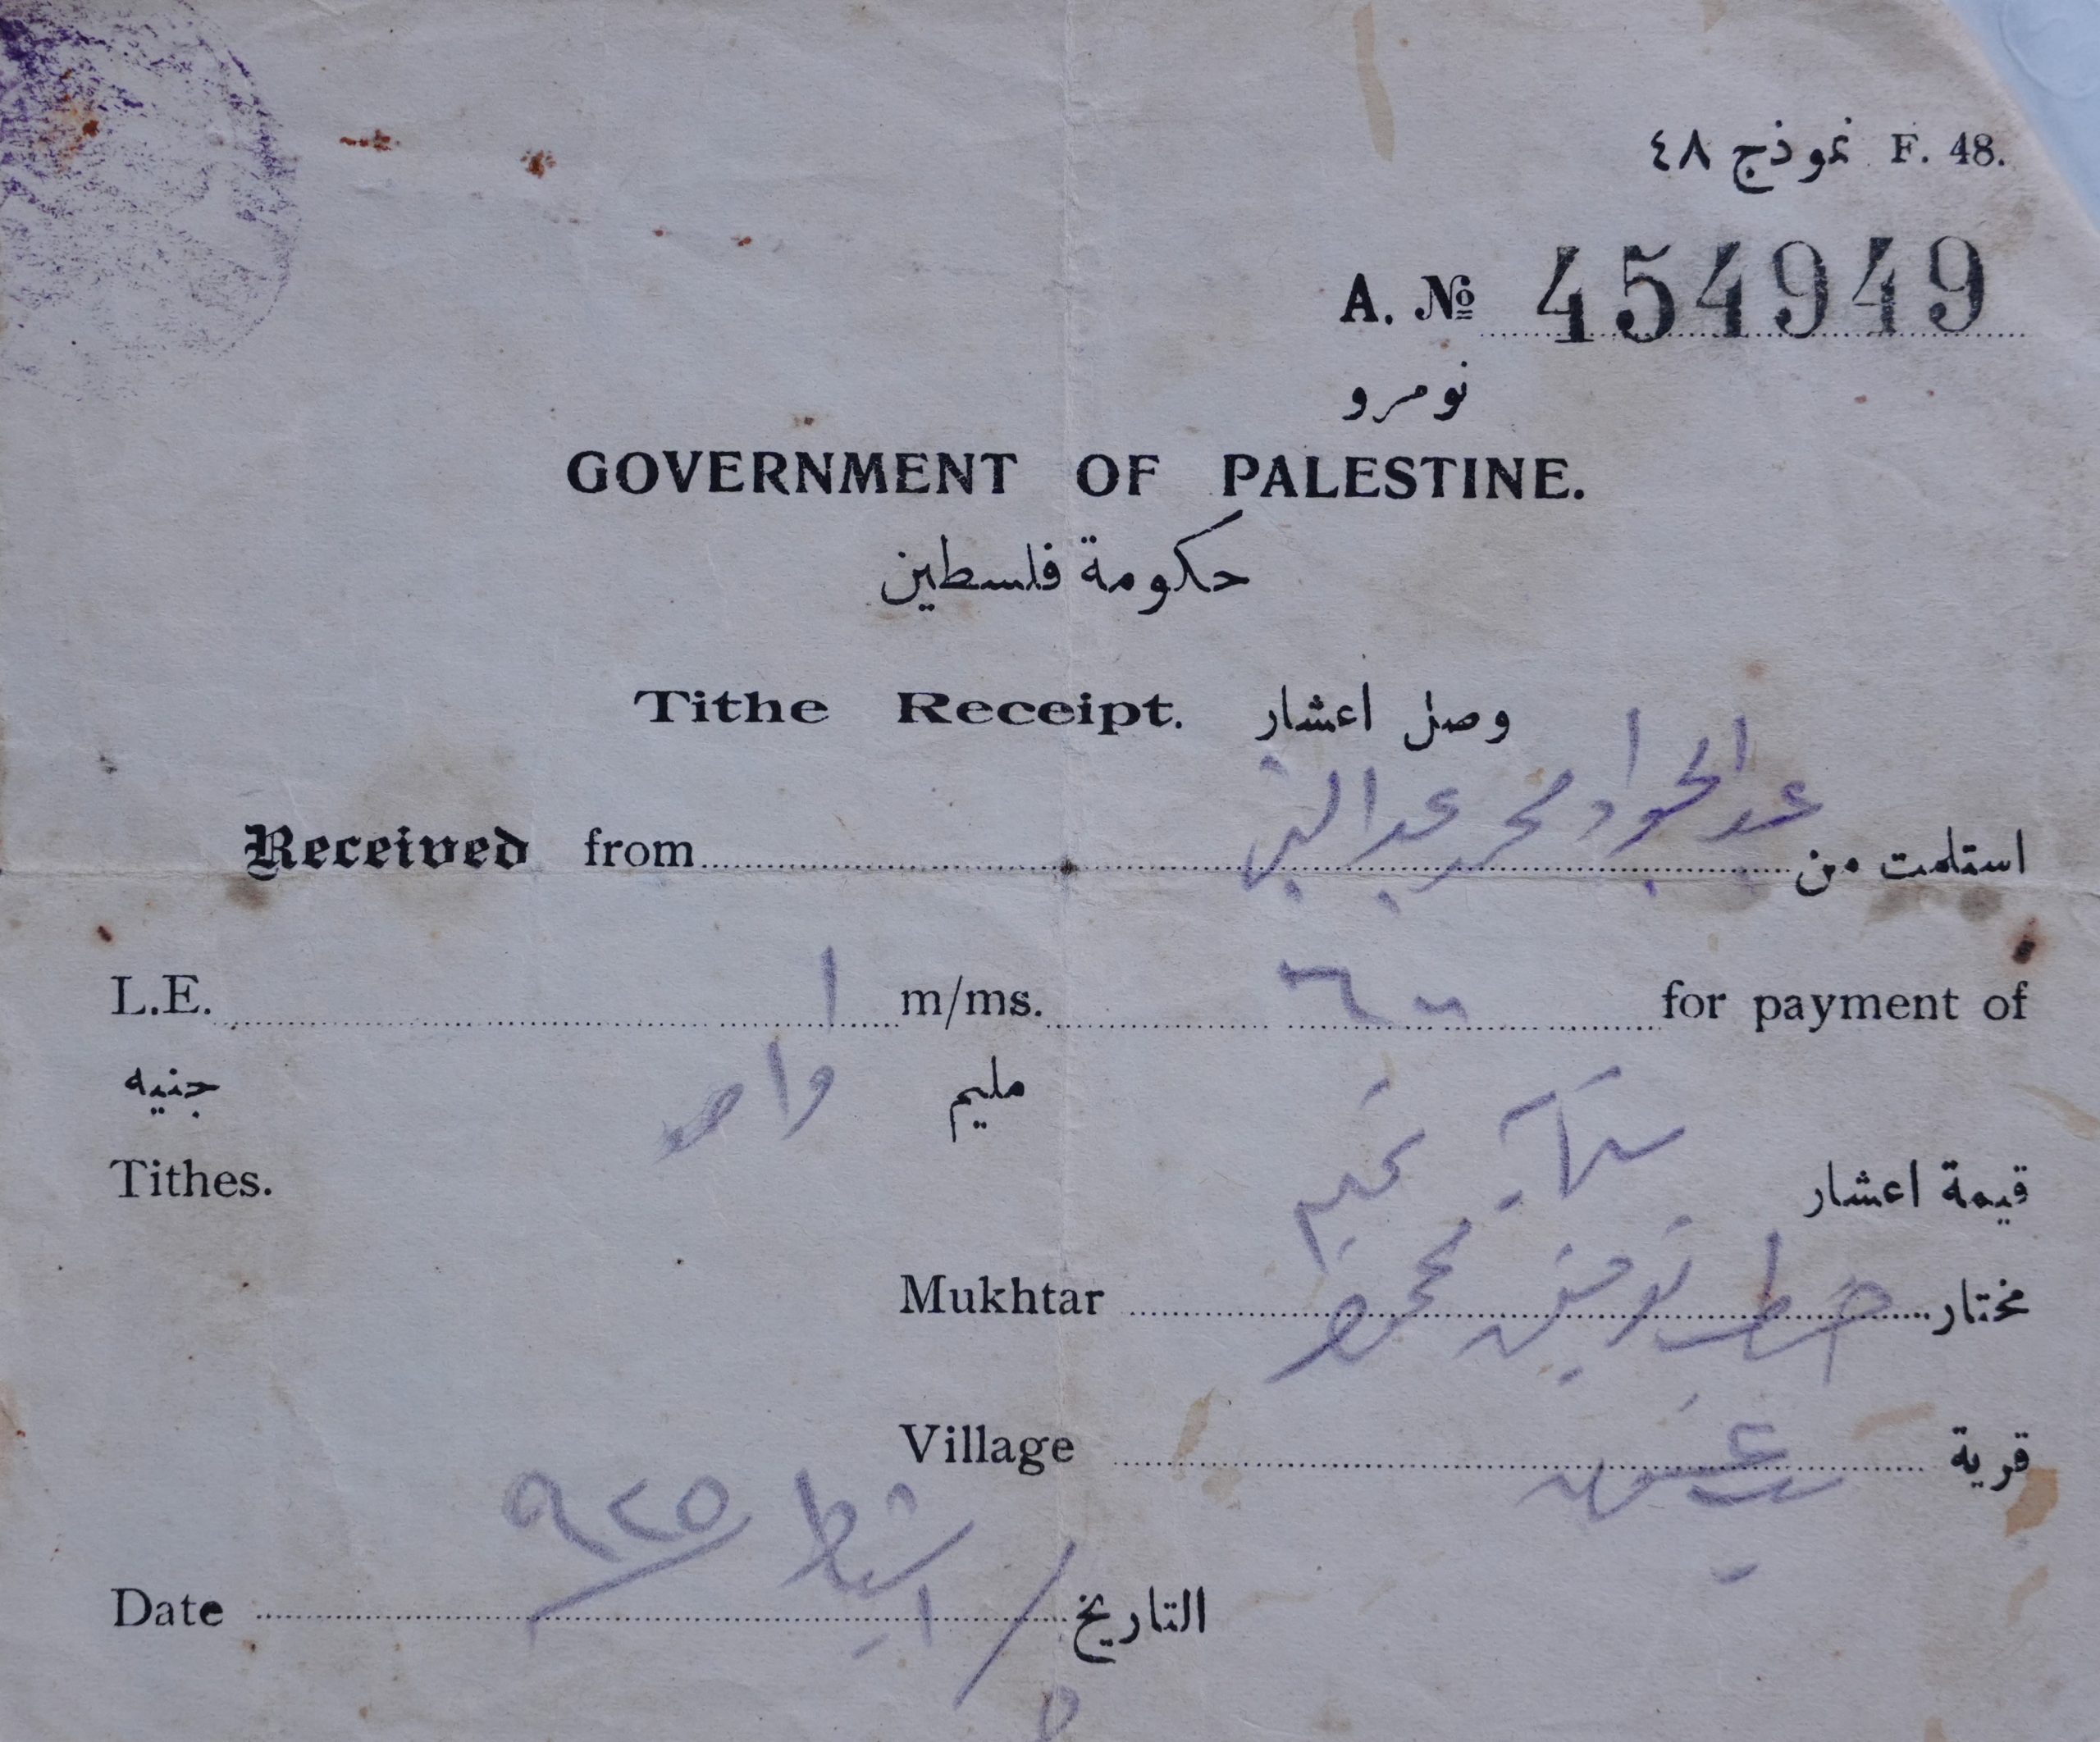 نموذج ٤٨ F. 48.
A. № 454949
نومرو
GOVERNMENT OF PALESTINE.
حكومة فلسطين
Tithe Receipt. وصل اعشار
Received from عبد الجواد محمد عبد النبي استلمت من
L.E. ١ m/ms. ٦٠٠ for payment of
جنيه واحد مليم
Tithes. ستماية قيمة اعشار
Mukhtar توفيق مختار
Village قرية
Date ٥ / شباط ٩٢٥ التاريخ